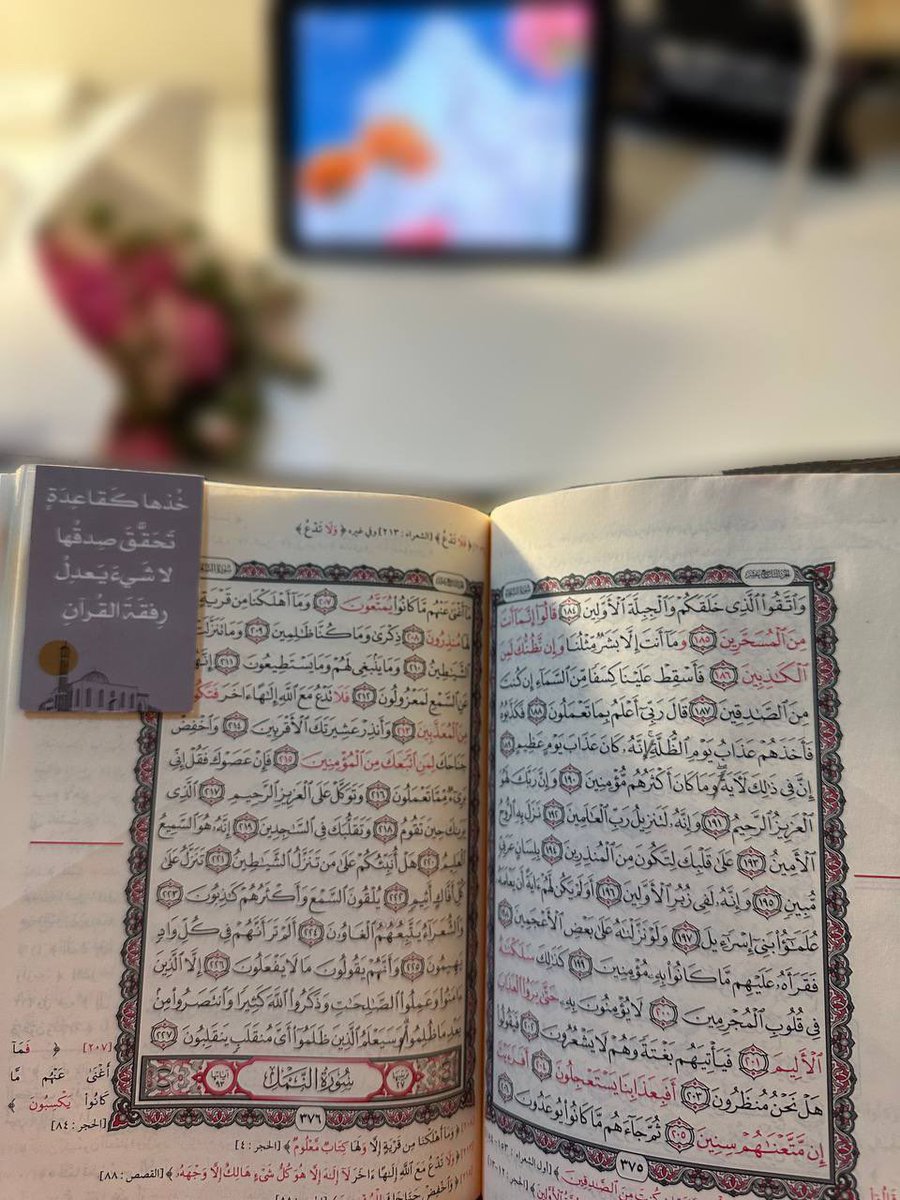 خُذها كَقاعِدَةٍ
تَحَقَّقَ صِدقُها
لا شَيءَ يَعدِلُ
رِفقَةَ القُرآنِ
وَٱتَّقُوا۟ ٱلَّذِى خَلَقَكُمْ وَٱلْجِبِلَّةَ ٱلْأَوَّلِينَ ١٨٤ قَالُوٓا۟ إِنَّمَآ أَنتَ
مِنَ ٱلْمُسَحَّرِينَ ١٨٥ وَمَآ أَنتَ إِلَّا بَشَرٌ مِّثْلُنَا وَإِن نَّظُنُّكَ لَمِنَ
ٱلْكَٰذِبِينَ ١٨٦ فَأَسْقِطْ عَلَيْنَا كِسَفًا مِّنَ ٱلسَّمَآءِ إِن كُنتَ
مِنَ ٱلصَّٰدِقِينَ ١٨٧ قَالَ رَبِّىٓ أَعْلَمُ بِمَا تَعْمَلُونَ ١٨٨ فَكَذَّبُوهُ
فَأَخَذَهُمْ عَذَابُ يَوْمِ ٱلظُّلَّةِ إِنَّهُۥ كَانَ عَذَابَ يَوْمٍ عَظِيمٍ ١٨٩
إِنَّ فِى ذَٰلِكَ لَءَايَةً وَمَا كَانَ أَكْثَرُهُم مُّؤْمِنِينَ ١٩٠ وَإِنَّ رَبَّكَ لَهُوَ
ٱلْعَزِيزُ ٱلرَّحِيمُ ١٩١ وَإِنَّهُۥ لَتَنزِيلُ رَبِّ ٱلْعَٰلَمِينَ ١٩٢ نَزَلَ بِهِ ٱلرُّوحُ
ٱلْأَمِينُ ١٩٣ عَلَىٰ قَلْبِكَ لِتَكُونَ مِنَ ٱلْمُنذِرِينَ ١٩٤ بِلِسَانٍ عَرَبِىٍّ
مُّبِينٍ ١٩٥ وَإِنَّهُۥ لَفِى زُبُرِ ٱلْأَوَّلِينَ ١٩٦ أَوَلَمْ يَكُن لَّهُمْ ءَايَةً أَن يَعْلَمَهُۥ
عُلَمَٰٓؤُا۟ بَنِىٓ إِسْرَٰٓءِيلَ ١٩٧ وَلَوْ نَزَّلْنَٰهُ عَلَىٰ بَعْضِ ٱلْأَعْجَمِينَ ١٩٨
فَقَرَأَهُۥ عَلَيْهِم مَّا كَانُوا۟ بِهِۦ مُؤْمِنِينَ ١٩٩ كَذَٰلِكَ سَلَكْنَٰهُ
فِى قُلُوبِ ٱلْمُجْرِمِينَ ٢٠٠ لَا يُؤْمِنُونَ بِهِۦ حَتَّىٰ يَرَوُا۟ ٱلْعَذَابَ
ٱلْأَلِيمَ ٢٠١ فَيَأْتِيَهُم بَغْتَةً وَهُمْ لَا يَشْعُرُونَ ٢٠٢ فَيَقُولُوا۟
هَلْ نَحْنُ مُنظَرُونَ ٢٠٣ أَفَبِعَذَابِنَا يَسْتَعْجِلُونَ ٢٠٤ أَفَرَءَيْتَ
إِن مَّتَّعْنَٰهُمْ سِنِينَ ٢٠٥ ثُمَّ جَآءَهُم مَّا كَانُوا۟ يُوعَدُونَ ٢٠٦
٣٧٥
﴿فَلَا تَدْعُ﴾ [الشعراء: ٢١٣] وفي غيره ﴿وَلَا تَدْعُ﴾
مَآ أَغْنَىٰ عَنْهُم مَّا كَانُوا۟ يُمَتَّعُونَ ٢٠٧ وَمَآ أَهْلَكْنَا مِن قَرْيَةٍ
لَهَا مُنذِرُونَ ٢٠٨ ذِكْرَىٰ وَمَا كُنَّا ظَٰلِمِينَ ٢٠٩ وَمَا تَنَزَّلَتْ
ٱلشَّيَٰطِينُ ٢١٠ وَمَا يَنۢبَغِى لَهُمْ وَمَا يَسْتَطِيعُونَ ٢١١ إِنَّهُمْ
عَنِ ٱلسَّمْعِ لَمَعْزُولُونَ ٢١٢ فَلَا تَدْعُ مَعَ ٱللَّهِ إِلَٰهًا ءَاخَرَ فَتَكُونَ
مِنَ ٱلْمُعَذَّبِينَ ٢١٣ وَأَنذِرْ عَشِيرَتَكَ ٱلْأَقْرَبِينَ ٢١٤ وَٱخْفِضْ
جَنَاحَكَ لِمَنِ ٱتَّبَعَكَ مِنَ ٱلْمُؤْمِنِينَ ٢١٥ فَإِنْ عَصَوْكَ فَقُلْ إِنِّى
بَرِىٓءٌ مِّمَّا تَعْمَلُونَ ٢١٦ وَتَوَكَّلْ عَلَى ٱلْعَزِيزِ ٱلرَّحِيمِ ٢١٧ ٱلَّذِى
يَرَىٰكَ حِينَ تَقُومُ ٢١٨ وَتَقَلُّبَكَ فِى ٱلسَّٰجِدِينَ ٢١٩ إِنَّهُۥ هُوَ ٱلسَّمِيعُ
ٱلْعَلِيمُ ٢٢٠ هَلْ أُنَبِّئُكُمْ عَلَىٰ مَن تَنَزَّلُ ٱلشَّيَٰطِينُ ٢٢١ تَنَزَّلُ عَلَىٰ
كُلِّ أَفَّاكٍ أَثِيمٍ ٢٢٢ يُلْقُونَ ٱلسَّمْعَ وَأَكْثَرُهُمْ كَٰذِبُونَ ٢٢٣
وَٱلشُّعَرَآءُ يَتَّبِعُهُمُ ٱلْغَاوُۥنَ ٢٢٤ أَلَمْ تَرَ أَنَّهُمْ فِى كُلِّ وَادٍ
يَهِيمُونَ ٢٢٥ وَأَنَّهُمْ يَقُولُونَ مَا لَا يَفْعَلُونَ ٢٢٦ إِلَّا ٱلَّذِينَ
ءَامَنُوا۟ وَعَمِلُوا۟ ٱلصَّٰلِحَٰتِ وَذَكَرُوا۟ ٱللَّهَ كَثِيرًا وَٱنتَصَرُوا۟ مِنۢ
بَعْدِ مَا ظُلِمُوا۟ وَسَيَعْلَمُ ٱلَّذِينَ ظَلَمُوٓا۟ أَىَّ مُنقَلَبٍ يَنقَلِبُونَ ٢٢٧
سُورَةُ النَّمْلِ
٣٧٦
[٢٠٧] ﴿فَمَآ
أَغْنَىٰ عَنْهُم مَّا
كَانُوا۟ يَكْسِبُونَ﴾
[الحجر: ٨٤]
﴿وَمَآ أَهْلَكْنَا مِن قَرْيَةٍ إِلَّا وَلَهَا كِتَابٌ مَّعْلُومٌ﴾ [الحجر: ٤]
﴿وَلَا تَدْعُ مَعَ ٱللَّهِ إِلَٰهًا ءَاخَرَ لَآ إِلَٰهَ إِلَّا هُوَ كُلُّ شَىْءٍ هَالِكٌ إِلَّا وَجْهَهُۥ﴾ [القصص: ٨٨]